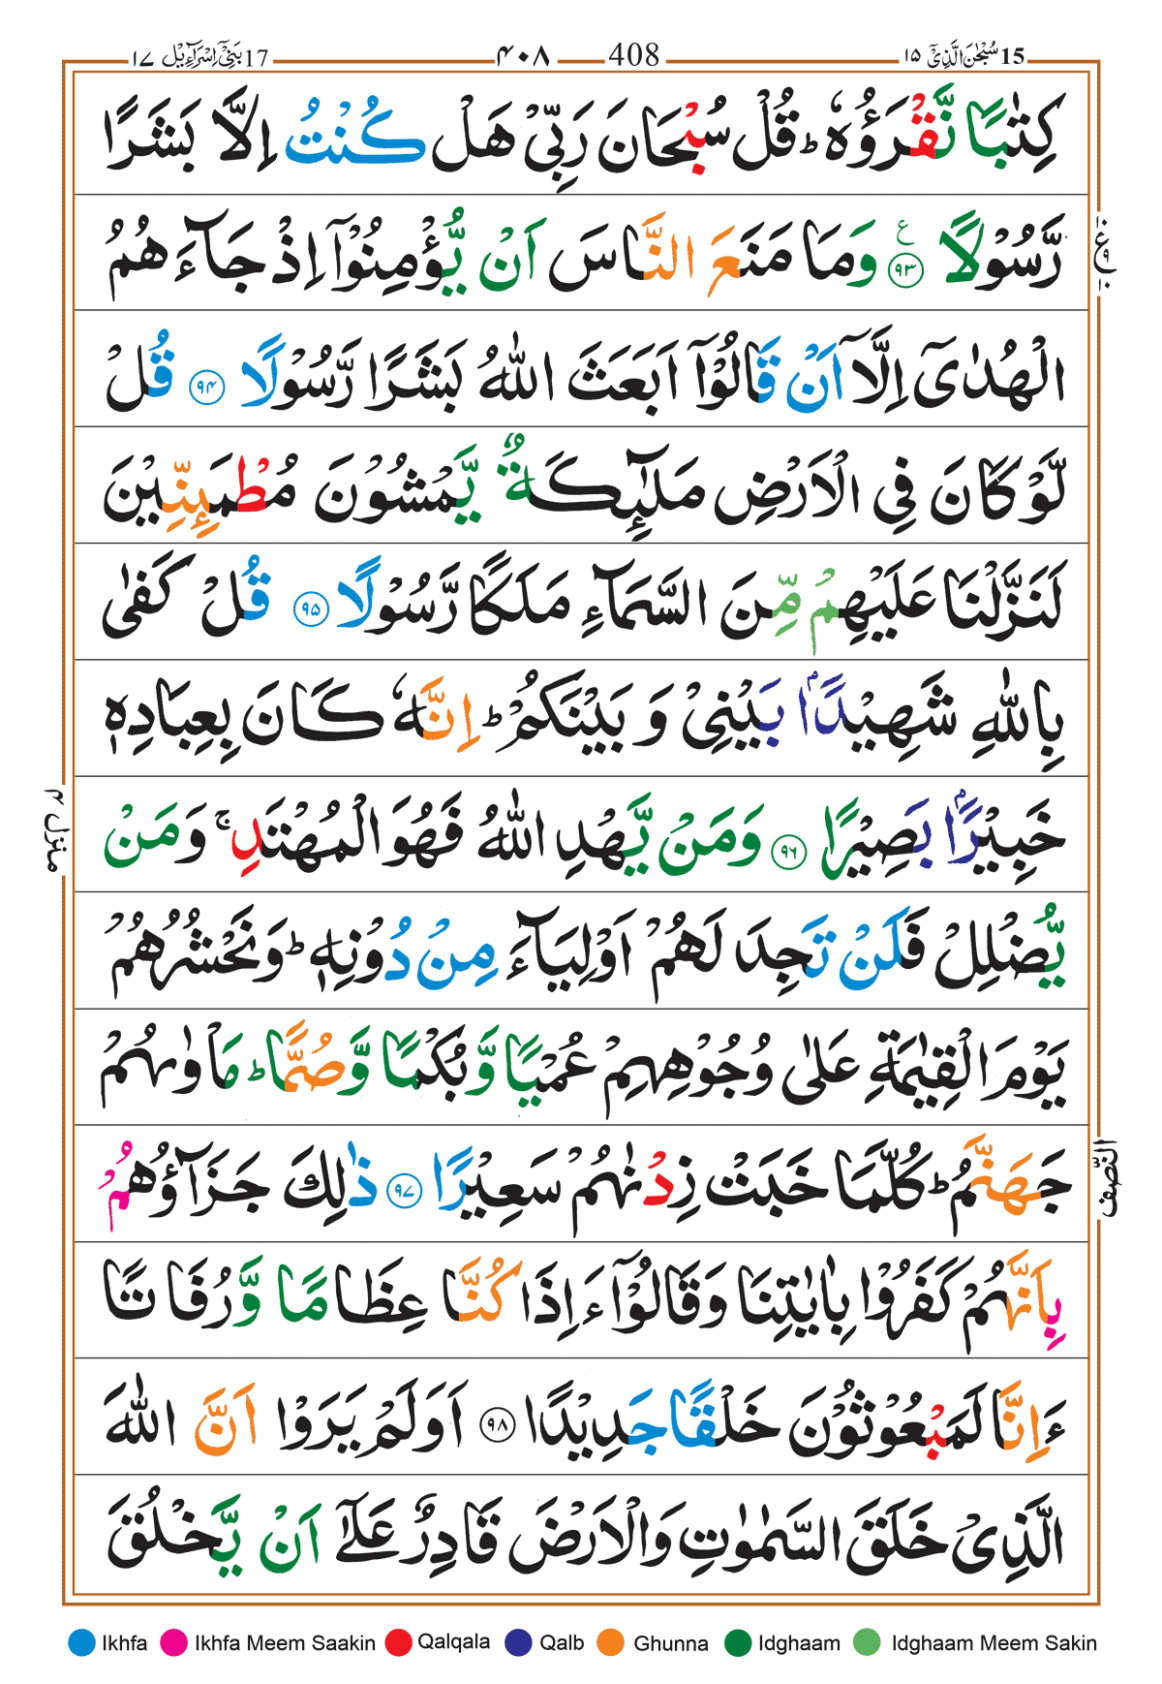 15 سُبْحٰنَ الَّذِیْۤ ۱۵ 408 ۴۰۸ 17 بَنِیْۤ اِسْرَآءِیْل ۱۷
كِتٰبًا نَّقْرَؤُهٗ ؕ قُلْ سُبْحَانَ رَبِّیْ هَلْ كُنْتُ اِلَّا بَشَرًا
رَّسُوْلًا ۹۳ ع وَمَا مَنَعَ النَّاسَ اَنْ یُّؤْمِنُوْۤا اِذْ جَآءَهُمُ
الْهُدٰۤی اِلَّاۤ اَنْ قَالُوْۤا اَبَعَثَ اللّٰهُ بَشَرًا رَّسُوْلًا ۹۴ قُلْ
لَّوْ كَانَ فِی الْاَرْضِ مَلٰٓئِكَةٌ یَّمْشُوْنَ مُطْمَىِٕنِّیْنَ
لَنَزَّلْنَا عَلَیْهِمْ مِّنَ السَّمَآءِ مَلَكًا رَّسُوْلًا ۹۵ قُلْ كَفٰی
بِاللّٰهِ شَهِیْدًۢا بَیْنِیْ وَ بَیْنَكُمْ ؕ اِنَّهٗ كَانَ بِعِبَادِهٖ
خَبِیْرًۢا بَصِیْرًا ۹۶ وَمَنْ یَّهْدِ اللّٰهُ فَهُوَ الْمُهْتَدِ ۚ وَمَنْ
یُّضْلِلْ فَلَنْ تَجِدَ لَهُمْ اَوْلِیَآءَ مِنْ دُوْنِهٖ ؕ وَنَحْشُرُهُمْ
یَوْمَ الْقِیٰمَةِ عَلٰی وُجُوْهِهِمْ عُمْیًا وَّبُكْمًا وَّصُمًّا ؕ مَاْوٰىهُمْ
جَهَنَّمُ ؕ كُلَّمَا خَبَتْ زِدْنٰهُمْ سَعِیْرًا ۹۷ ذٰلِكَ جَزَآؤُهُمْ
بِاَنَّهُمْ كَفَرُوْا بِاٰیٰتِنَا وَقَالُوْۤا ءَاِذَا كُنَّا عِظَامًا وَّرُفَاتًا
ءَاِنَّا لَمَبْعُوْثُوْنَ خَلْقًا جَدِیْدًا ۹۸ اَوَلَمْ یَرَوْا اَنَّ اللّٰهَ
الَّذِیْ خَلَقَ السَّمٰوٰتِ وَالْاَرْضَ قَادِرٌ عَلٰۤی اَنْ یَّخْلُقَ
منزل ۴
النّصف
Ikhfa Ikhfa Meem Saakin Qalqala Qalb Ghunna Idghaam Idghaam Meem Sakin